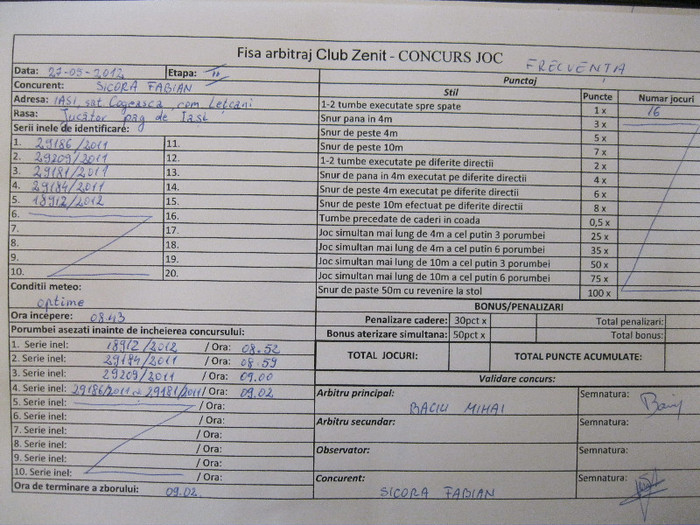 Fisa arbitraj Club Zenit - CONCURS JOC FRECVENȚA
Data: 27-05-2012 Etapa: II
Concurent: SICORA FABIAN
Adresa: IASI, sat Cogeasca, com Lețcani
Rasa: Jucător pag de Iasi
Serii inele de identificare:
1. 29186/2011 11.
2. 29209/2011 12.
3. 29181/2011 13.
4. 29184/2011 14.
5. 18912/2012 15.
6. 16.
7. 17.
8. 18.
9. 19.
10. 20.
Conditii meteo:
optime
Ora incepere: 08.43
Porumbei asezati inainte de incheierea concursului:
1. Serie inel: 18912/2012 / Ora: 08.52
2. Serie inel: 29184/2011 / Ora: 08.59
3. Serie inel: 29209/2011 / Ora: 09.00
4. Serie inel: 29186/2011 29181/2011 / Ora: 09.02
5. Serie inel: / Ora:
6. Serie inel: / Ora:
7. Serie inel: / Ora:
8. Serie inel: / Ora:
9. Serie inel: / Ora:
10. Serie inel: / Ora:
Ora de terminare a zborului: 09.02
Punctaj
Stil Puncte Numar jocuri
1-2 tumbe executate spre spate 1 x 16
Snur pana in 4m 3 x
Snur de peste 4m 5 x
Snur de peste 10m 7 x
1-2 tumbe executate pe diferite directii 2 x
Snur de pana in 4m executat pe diferite directii 4 x
Snur de peste 4m executat pe diferite directii 6 x
Snur de peste 10m efectuat pe diferite directii 8 x
Tumbe precedate de caderi in coada 0,5 x
Joc simultan mai lung de 4m a cel putin 3 porumbei 25 x
Joc simultan mai lung de 4m a cel putin 6 porumbei 35 x
Joc simultan mai lung de 10m a cel putin 3 porumbei 50 x
Joc simultan mai lung de 10m a cel putin 6 porumbei 75 x
Snur de paste 50m cu revenire la stol 100 x
BONUS/PENALIZARI
Penalizare cadere: 30pct x Total penalizari:
Bonus aterizare simultana: 50pct x Total bonus:
TOTAL JOCURI: TOTAL PUNCTE ACUMULATE:
Validare concurs:
Arbitru principal: Semnatura:
BACIU MIHAI
Arbitru secundar: Semnatura:
Observator: Semnatura:
Concurent: Semnatura:
SICORA FABIAN